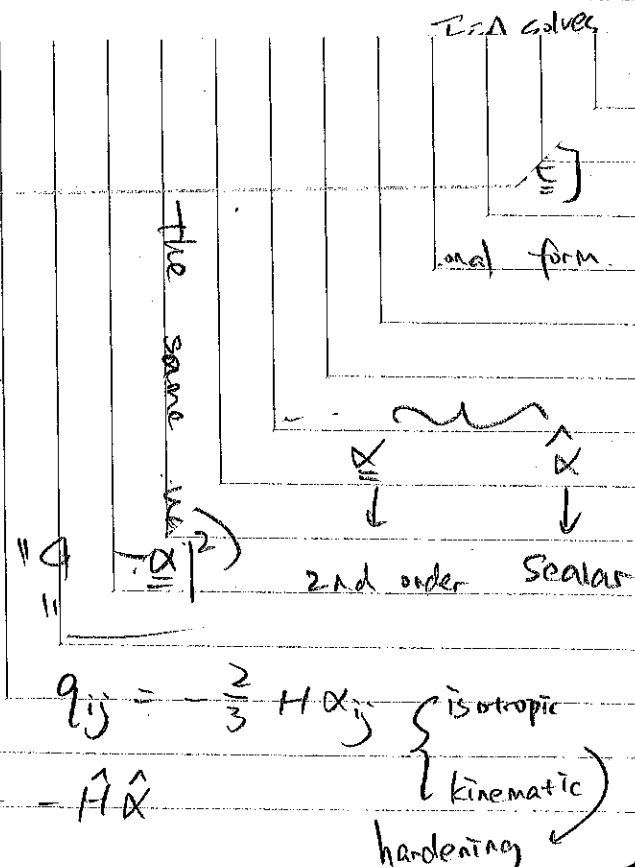 solves
ε]
form.
The same
α α̂
α|²)
2nd order Scalar
q_ij = - 2/3 H α_ij { isotropic
- Ĥ α̂ kinematic
hardening